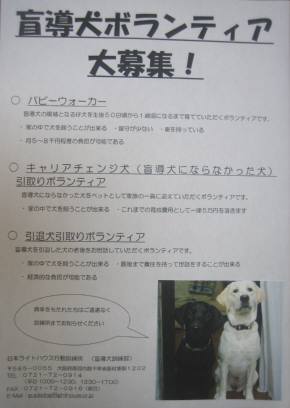 盲導犬ボランティア
大募集!
○ パピーウォーカー
盲導犬の候補となる仔犬を生後50日頃から1歳頃になるまで育てていただくボランティアです。
・家の中で犬を飼うことが出来る ・留守が少ない ・車を持っている
・月5~8千円程度の負担が可能である
○ キャリアチェンジ犬(盲導犬にならなかった犬)
引取りボランティア
盲導犬にならなかった犬をペットとして家族の一員に迎えていただくボランティアです。
・家の中で犬を飼うことが出来る ・これまでの育成費用として一律5万円を頂きます
○ 引退犬引取りボランティア
盲導犬を引退した犬の老後をお世話していただくボランティアです。
・家の中で犬を飼うことが出来る ・最後まで責任を持って世話をすることが出来る
・経済的な負担が可能である
興味をもたれた方はご遠慮なく
訓練所までお知らせください
日本ライトハウス行動訓練所 (盲導犬訓練部)
〒585-0055 大阪府南河内郡千早赤阪村東阪1202
TEL 0721-72-0914
FAX 0721-72-0916
E-Mail